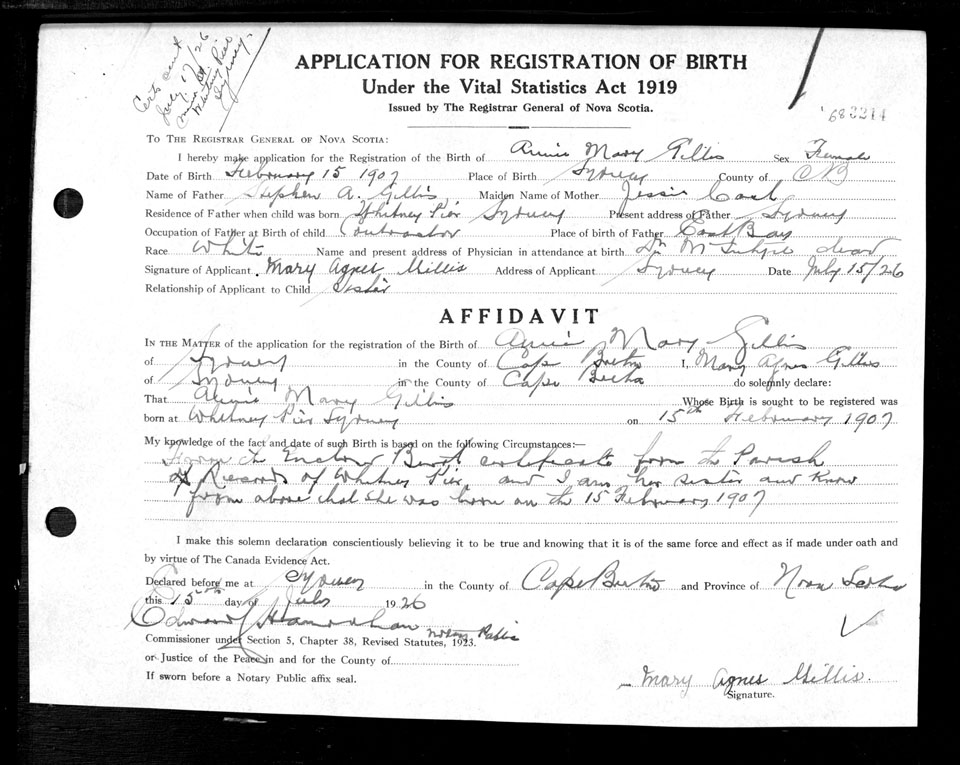 Certs sent
July 17/26
Whitney Pier
Sydney.
APPLICATION FOR REGISTRATION OF BIRTH
Under the Vital Statistics Act 1919
Issued by The Registrar General of Nova Scotia.
TO THE REGISTRAR GENERAL OF NOVA SCOTIA:
I hereby make application for the Registration of the Birth of Annie Mary Gillis Sex Female
Date of Birth February 15 1907 Place of Birth Sydney County of CB
Name of Father Stephen A. Gillis Maiden Name of Mother Jessie
Residence of Father when child was born Whitney Pier Sydney Present address of Father Sydney
Occupation of Father at Birth of child Contractor Place of birth of Father East Bay
Race White Name and present address of Physician in attendance at birth Dr dead
Signature of Applicant Mary Agnes Gillis Address of Applicant Sydney Date July 15/26
Relationship of Applicant to Child Sister
AFFIDAVIT
IN THE MATTER of the application for the registration of the Birth of Annie Mary Gillis
of Sydney in the County of Cape Breton I, Mary Agnes Gillis
of Sydney in the County of Cape Breton do solemnly declare:
That Annie Mary Gillis Whose Birth is sought to be registered was
born at Whitney Pier Sydney on 15th February 1907
My knowledge of the fact and date of such Birth is based on the following Circumstances:—
From the Birth certificate from the Parish
Records of Whitney Pier, and I am her sister and know
from above that she was born on the 15 February 1907
I make this solemn declaration conscientiously believing it to be true and knowing that it is of the same force and effect as if made under oath and
by virtue of The Canada Evidence Act.
Declared before me at Sydney in the County of Cape Breton and Province of Nova Scotia
this 15th day of July 1926
Notary Public
Commissioner under Section 5, Chapter 38, Revised Statutes, 1923.
or Justice of the Peace in and for the County of
If sworn before a Notary Public affix seal.
Mary Agnes Gillis.
Signature.